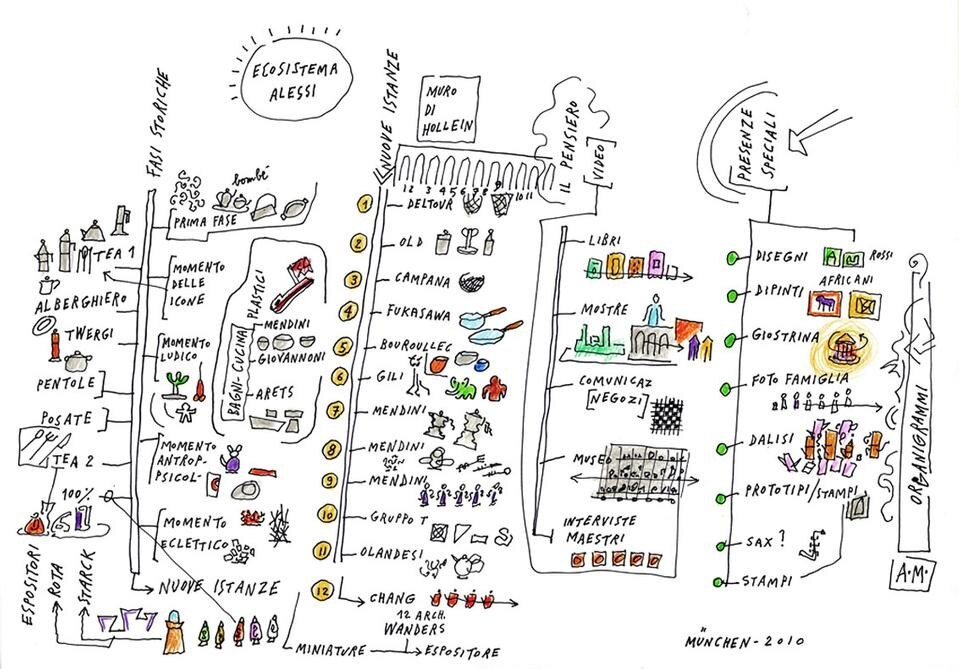 ECOSISTEMA
ALESSI
FASI STORICHE
bombé
PRIMA FASE
TEA 1
MOMENTO
DELLE
ICONE
ALBERGHIERO
TWERGI
MOMENTO
LUDICO
PENTOLE
POSATE
MOMENTO
ANTROP-
PSICOL-
TEA 2
100%
MOMENTO
ECLETTICO
ESPOSITORI
ROTA
STARCK
NUOVE ISTANZE
PLASTICI
BAGNI-CUCINA
MENDINI
GIOVANNONI
ARETS
NUOVE ISTANZE
MURO
DI
HOLLEIN
1 2 3 4 5 6 7 8 9 10 11
1 DELTOUR
2 OLD
3 CAMPANA
4 FUKASAWA
5 BOUROULLEC
6 GILI
7 MENDINI
8 MENDINI
9 MENDINI
10 GRUPPO T
11 OLANDESI
12 CHANG
12 ARCH.
WANDERS
MINIATURE
ESPOSITORE
IL PENSIERO
VIDEO
LIBRI
MOSTRE
COMUNICAZ
NEGOZI
MUSEO
INTERVISTE
MAESTRI
PRESENZE
SPECIALI
DISEGNI
ROSSI
DIPINTI
AFRICANI
GIOSTRINA
FOTO FAMIGLIA
DALISI
PROTOTIPI/STAMPI
SAX?
STAMPI
ORGANIGRAMMI
A.M.
MÜNCHEN-2010